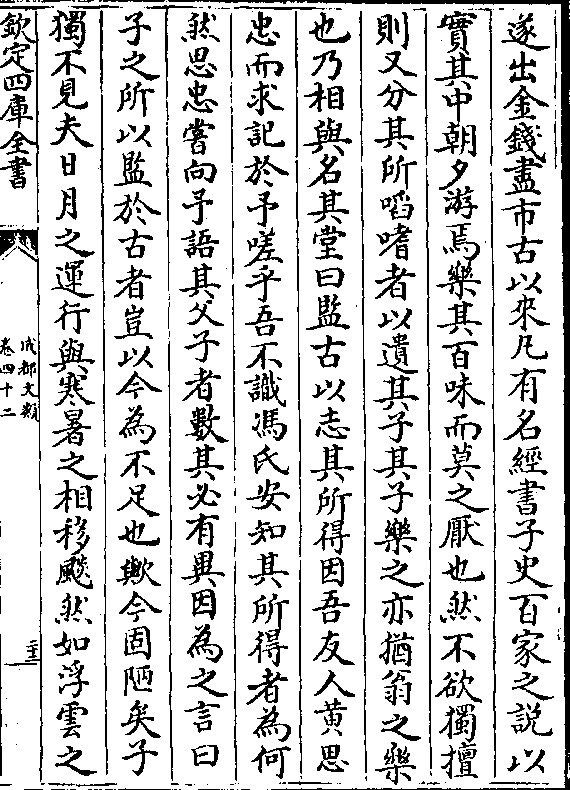 遂出金錢盡市古以來凡有名經書子史百家之說以
實其中朝夕游焉樂其百味而莫之厭也然不欲獨擅
則又分其所㗖嗜者以遺其子其子樂之亦猶翁之樂
也乃相與名其堂曰監古以志其所得因吾友人黄思
忠而求記於予嗟乎吾不識馮氏安知其所得者為何
然思忠嘗向予語其父子者數其必有異因為之言曰
子之所以監於古者豈以今為不足也歟今固陋矣子
獨不見夫日月之運行與寒暑之相移飈然如浮雲之
欽定四庫全書
成都文類
卷四十二
二十三